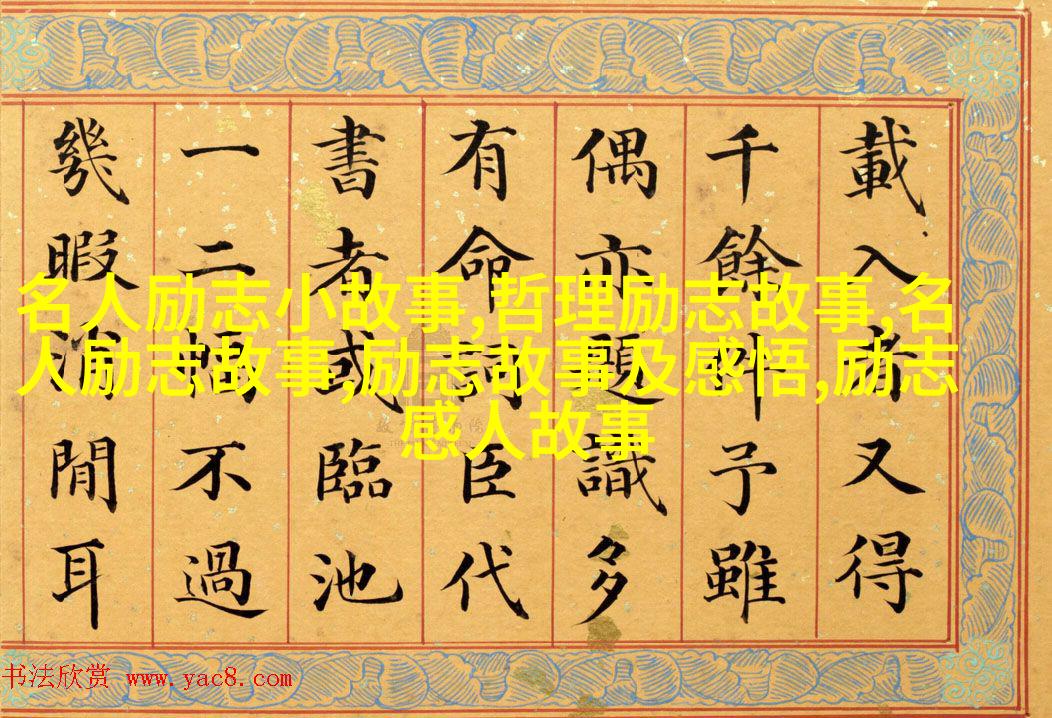 載入者又得
千餘件予雖
偶亦題識多
有命詞臣代
書者或臨池
一二不過
幾暇消閒耳
名人励志小故事,哲理励志故事,名
人励志故事,励志故事及感悟,励志
感人故事
书法欣赏 www.yac8.com